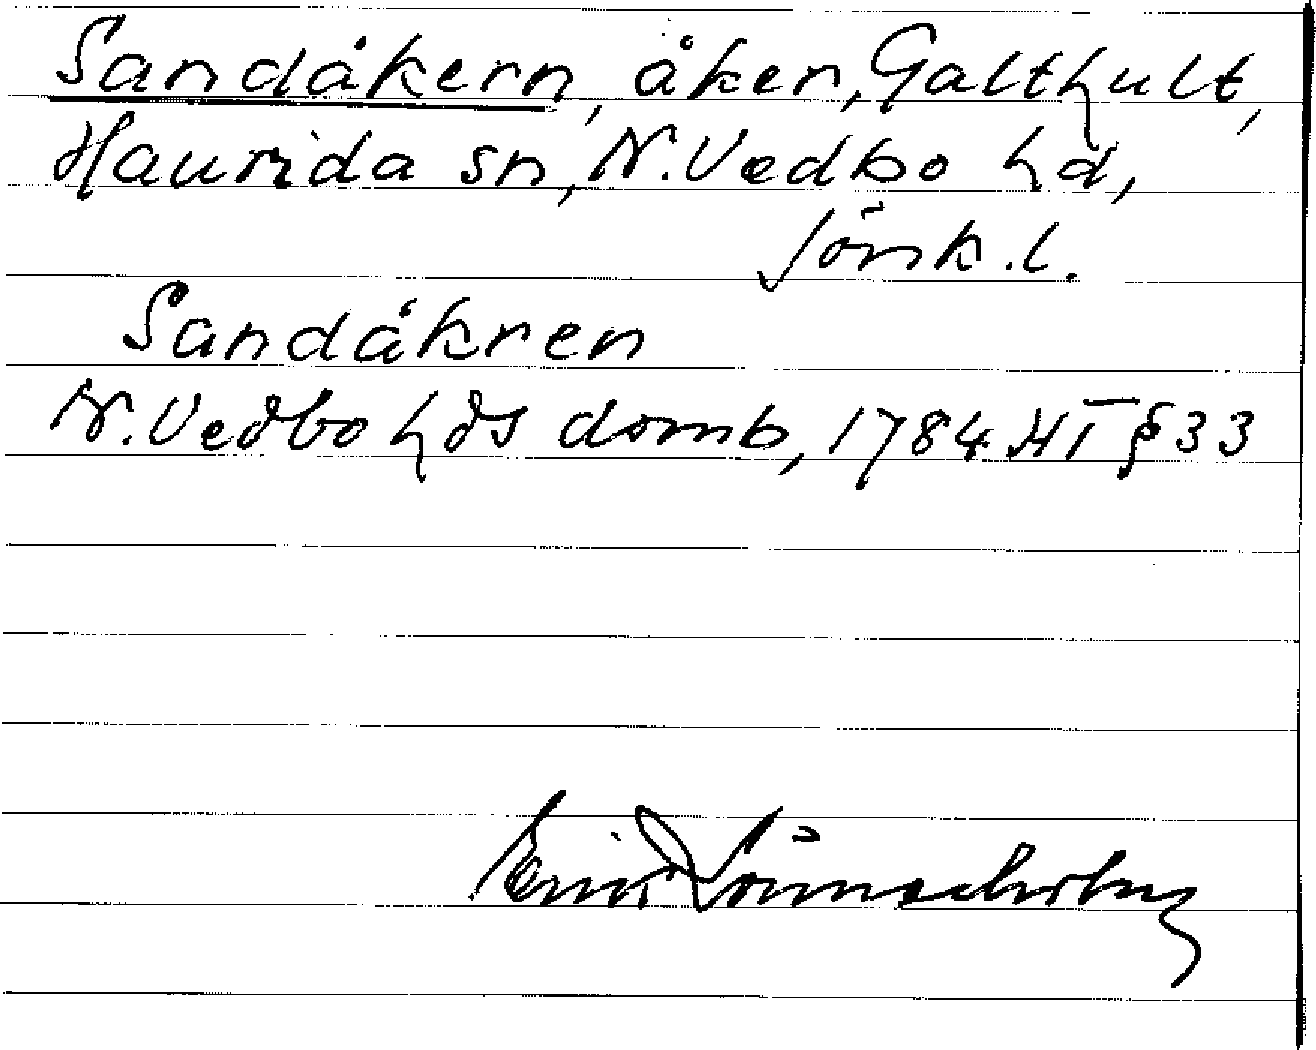 Sandåkern, åker, Galthult,
Haurida sn, N. Vedbo hd,
Jönk. l.
Sandåkren
N. Vedbo hds domb, 1784 HT § 33
Erik Lönnerberg